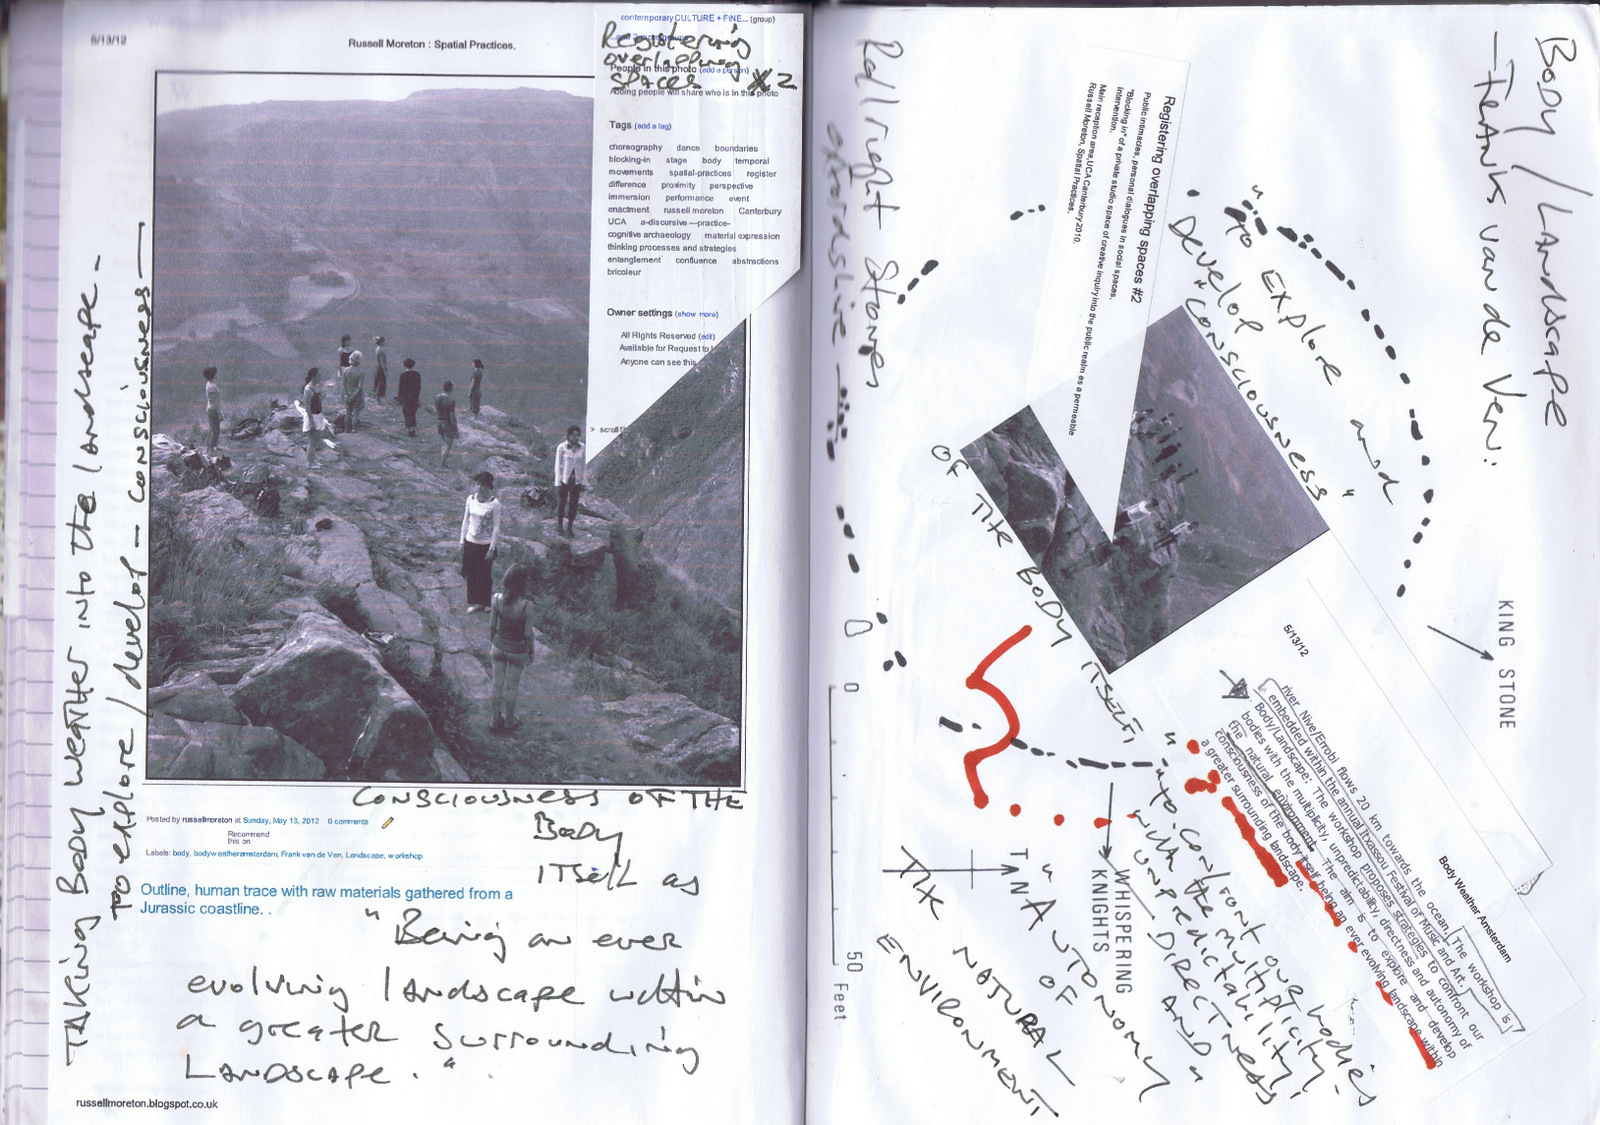 5/13/12
Russell Moreton : Spatial Practices.
contemporary CULTURE + FINE... (group)
Registering
overlapping
spaces #2
People in this photo (add a person)
Adding people will share who is in this photo
Tags (add a tag)
choreography dance boundaries
blocking-in stage body temporal
movements spatial-practices register
difference proximity perspective
immersion performance event
enactment russell moreton Canterbury
UCA a-discursive —practice-
cognitive archaeology material expression
thinking processes and strategies
entanglement confluence abstractions
bricoleur
Owner settings (show more)
All Rights Reserved (edit)
Available for Request to
Anyone can see this
> scroll
TAKING BODY WEATHER into the landscape -
TO explore / develop - consciousness —
CONSCIOUSNESS OF THE
Body
ITself as
"Being an ever
evolving landscape within
a greater surrounding
LANDSCAPE."
Posted by russellmoreton at Sunday, May 13, 2012 0 comments
Recommend
this on
Labels: body, bodyweatheramsterdam, Frank van de Ven, Landscape, workshop
Outline, human trace with raw materials gathered from a
Jurassic coastline. .
russellmoreton.blogspot.co.uk
Body / Landscape
— Frank van de Ven.
Rollright Stones
oxfordshire
Registering overlapping spaces #2
Public intimacies, personal dialogues in social spaces.
"Blocking in" of a private studio space of creative inquiry into the public realm as a permeable
intervention.
Main reception area, UCA Canterbury 2010.
Russell Moreton, Spatial Practices.
"to EXplore and
Develop
"CONSCIOUSNESS"
OF THE BODY ITSELF
KING STONE
5/13/12
Body Weather Amsterdam
river Nive/Errobi flows 20 km towards the ocean. The workshop is
embedded within the annual Itxassou Festival of Music and Art.
Body/Landscape: The workshop proposes strategies to confront our
bodies with the multiplicity, unpredictability, directness and autonomy of
the natural environment. The aim is to explore and develop
consciousness of the body itself being an ever evolving landscape within
a greater surrounding landscape.
"to confront our bodies
with the multiplicity,
unpredictability,
DIRECTNESS
AND
AUTONOMY
OF
THE NATURAL
ENVIRONMENT
WHISPERING
KNIGHTS
0
50 Feet